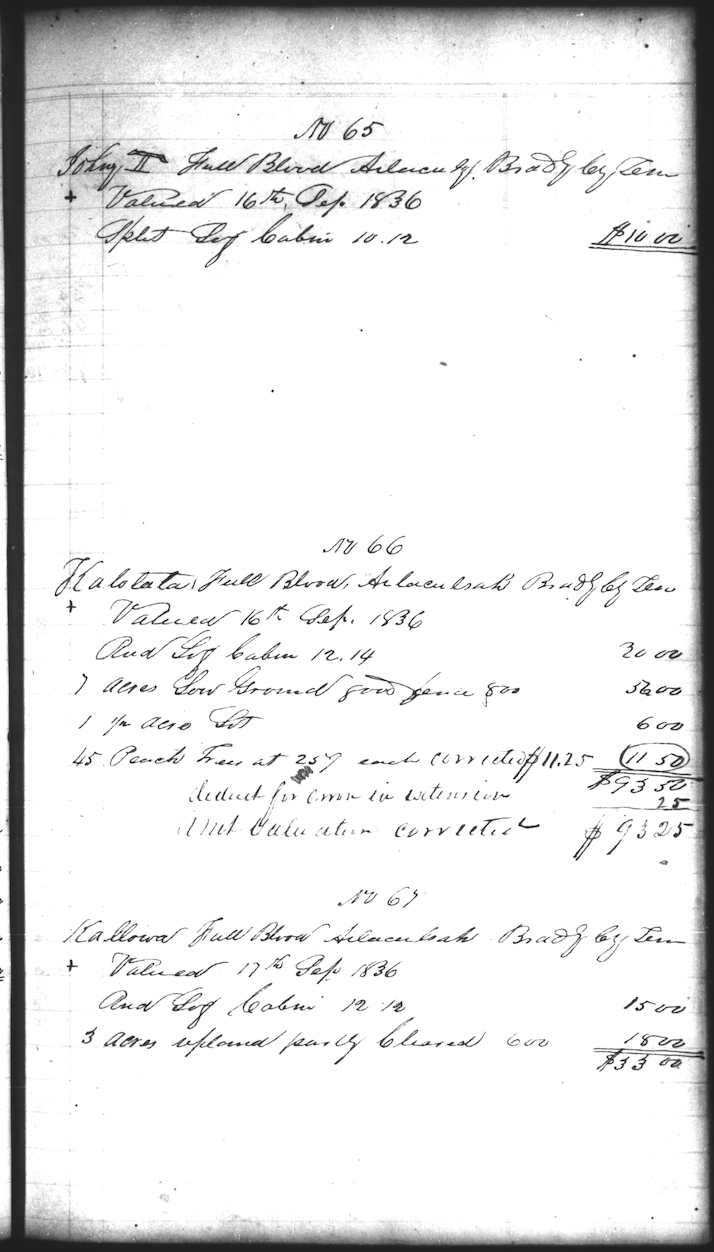 No 65
Johny II Full Blood Bradly Cy Ten
+ Valued 16th Sep 1836
Split Log Cabin 10.12 $10 00
No 66
Kalotata, Full Blood, Ailaculsah Bradly Cy Ten
+ Valued 16th Sep. 1836
And Log Cabin 12.14 20 00
7 acres Low Ground good fence 800 56 00
1 acre Lot 6 00
45 Peach Trees at 25 each corrected $11.25 11 50
$93 50
deduct for error in extension 25
Amt Valuation corrected $93 25
No 67
Kallowa Full Blood Ailaculsah Bradly Cy Ten
+ Valued 17th Sep 1836
And Log Cabin 12 12 15 00
3 acres upland partly Cleared 600 18 00
$33 00